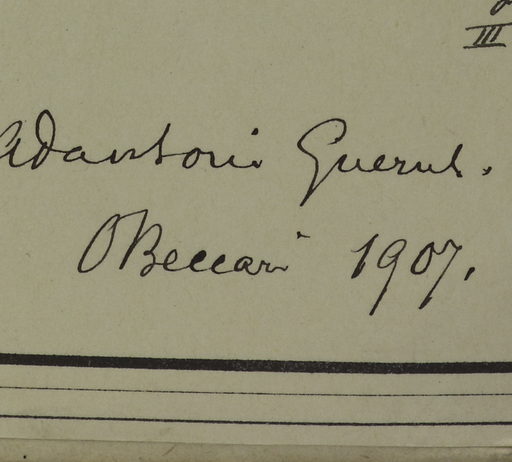 III
Adansoni Guerns.
O Beccari 1907.